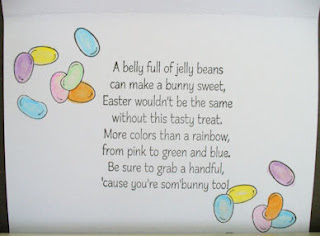 A belly full of jelly beans
can make a bunny sweet,
Easter wouldn't be the same
without this tasty treat.
More colors than a rainbow,
from pink to green and blue.
Be sure to grab a handful,
'cause you're som'bunny too!